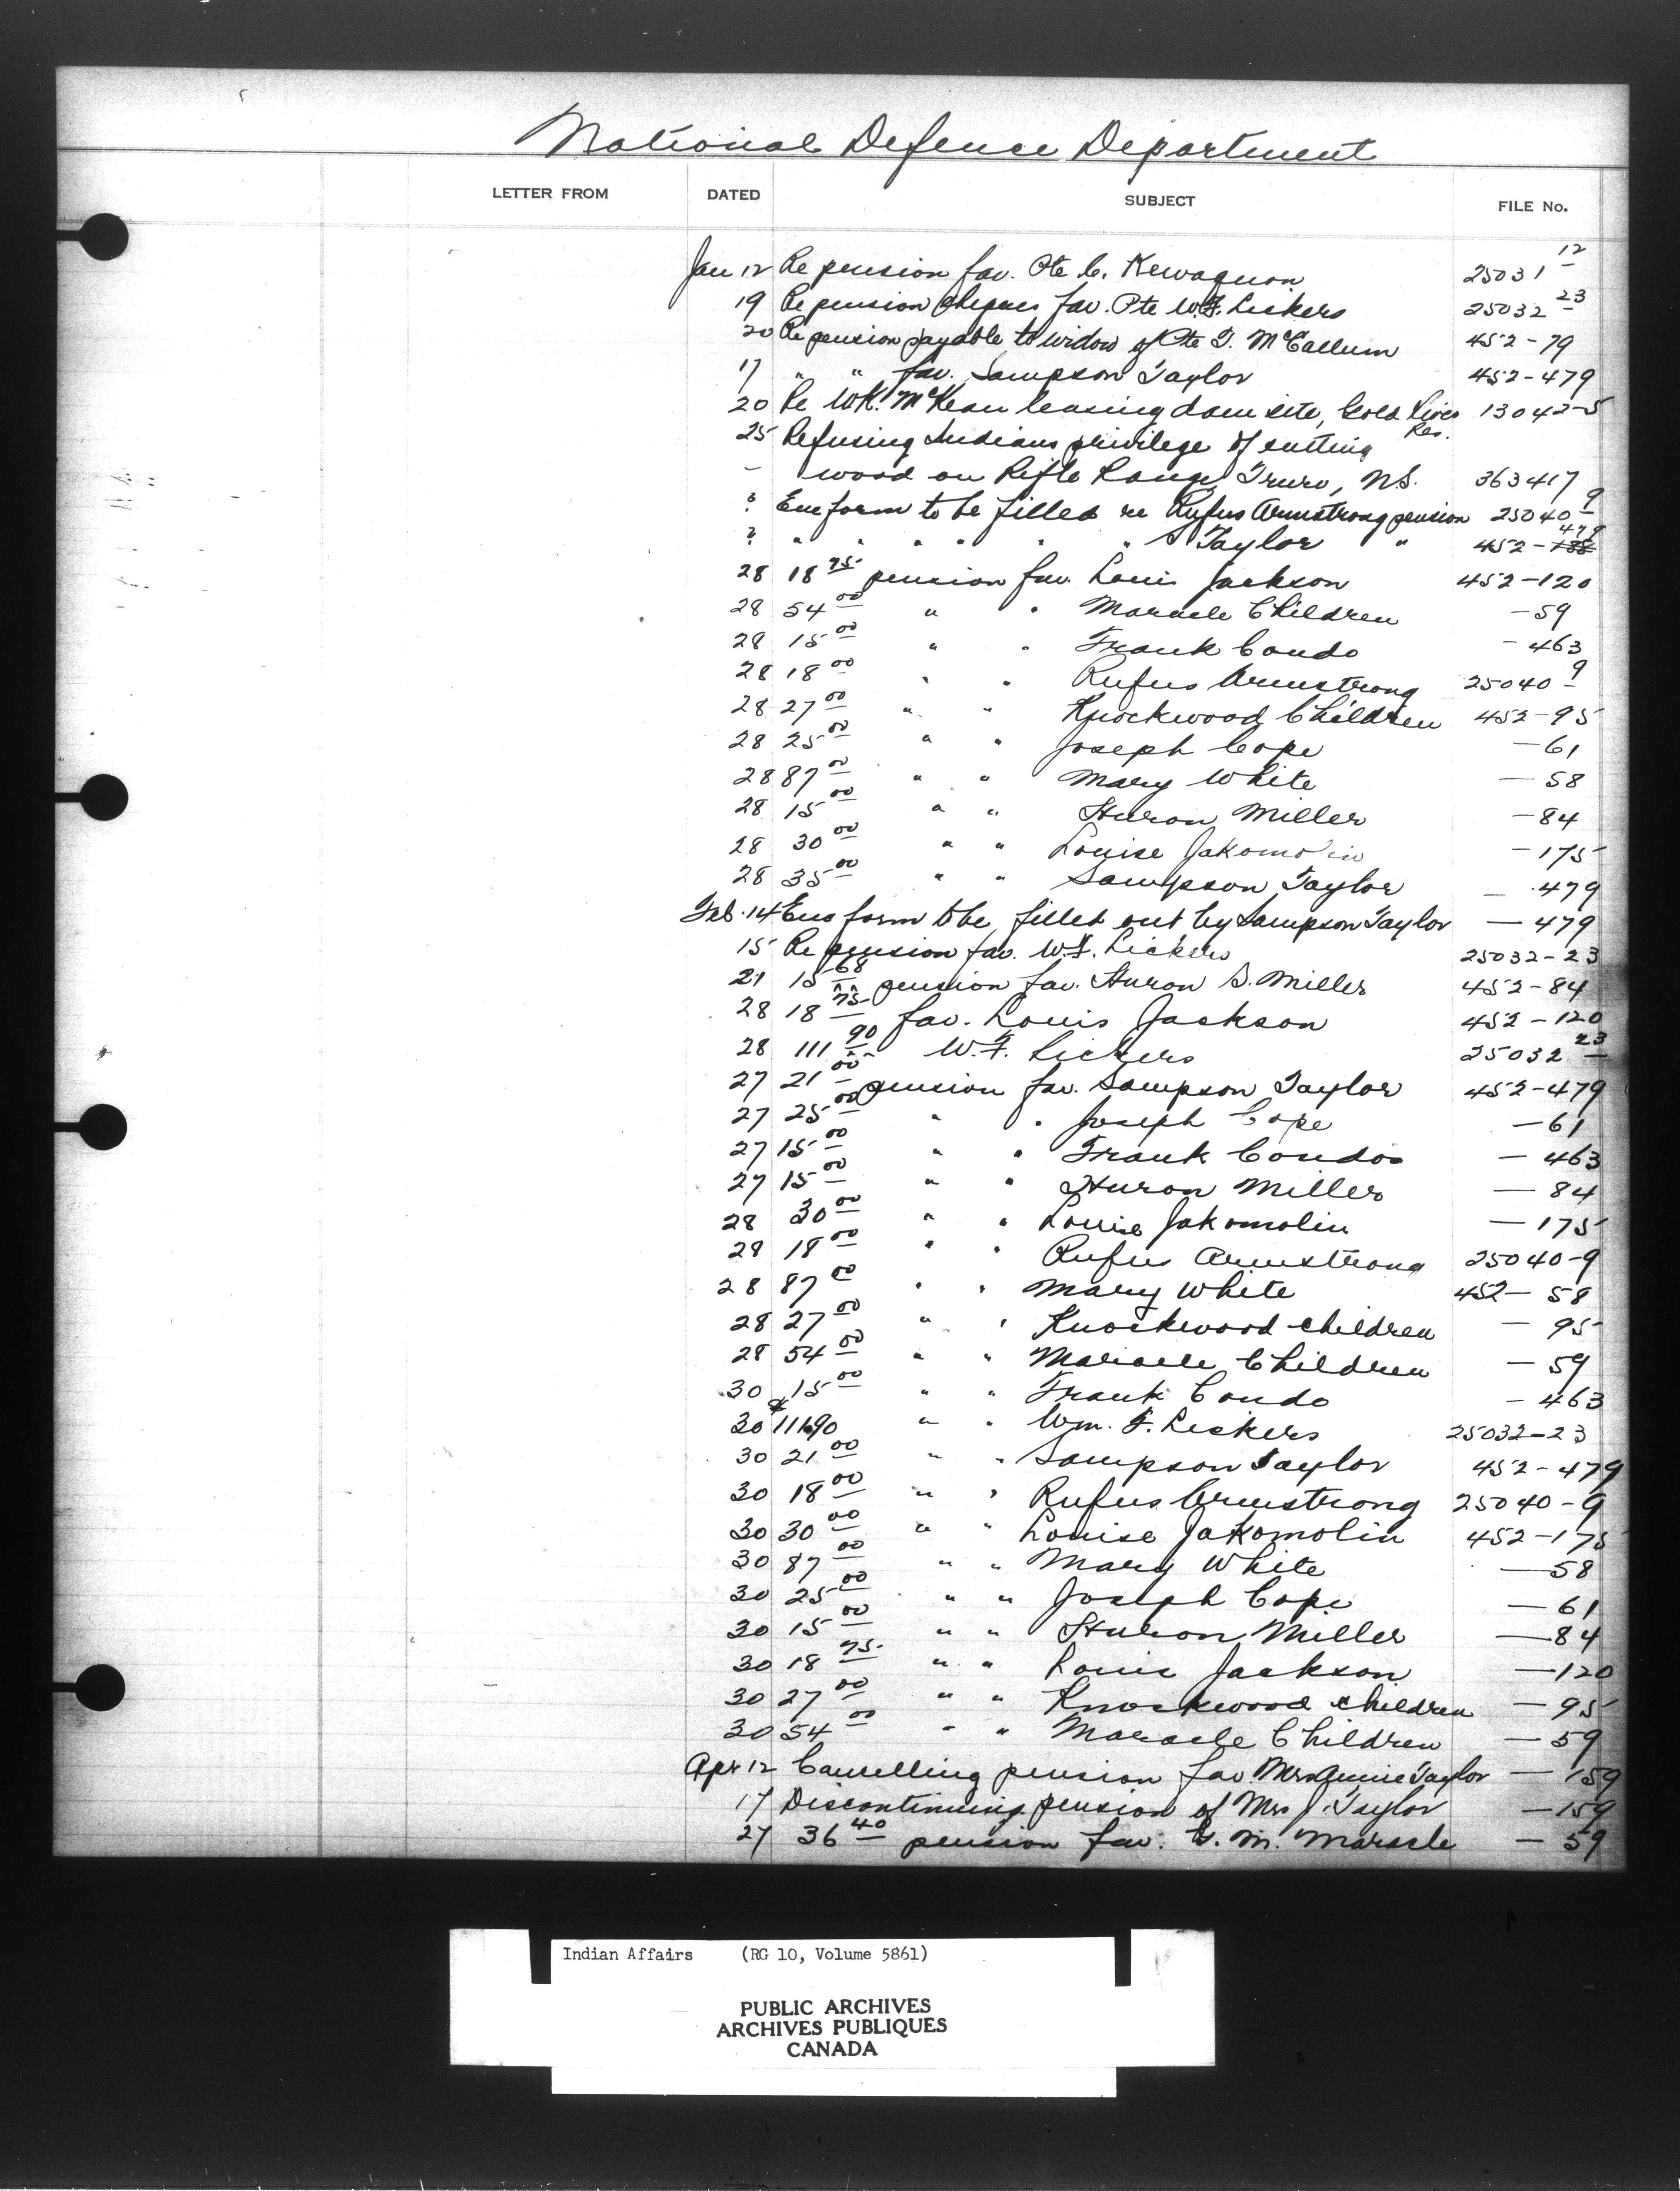 National Defence Department
LETTER FROM DATED SUBJECT FILE No.
Jan 12 Re pension fav. Pte C. Kewaquon 25031-12
19 Re pension cheques fav. Pte W.F. Lickers 25032-23
20 Re pension payable to widow of Pte T. McCallum 452-79
17 " " fav. Sampson Taylor 452-479
20 Re McKean leasing dam site, Gold River Res. 13042-5
25 Refusing Indians privilege of cutting
- wood on Rifle Range, Truro, N.S. 363417
? Enc form to be filled re Rufus Armstrong pension 25040-9
? " " " " " " S Taylor " 452-479
28 18 75 pension fav. Louis Jackson 452-120
28 54 00 " " Maracle Children -59
28 15 00 " " Frank Condo -463
28 18 00 " " Rufus Armstrong 25040-9
28 27 00 " " Knockwood Children 452-95
28 25 00 " " Joseph Cope -61
28 87 00 " " Mary White -58
28 15 00 " " Huron Miller -84
28 30 00 " " Louise Jakomolin -175
28 35 00 " " Sampson Taylor - 479
Feb. 14 Enc form to be filled out by Sampson Taylor - 479
15 Re pension fav. W.F. Lickers 25032-23
21 15 68 pension fav. Huron S. Miller 452-84
28 18 75 fav. Louis Jackson 452-120
28 111 90 W.F. Lickers 25032-23
27 21 00 pension fav. Sampson Taylor 452-479
27 25 00 " " Joseph Cope -61
27 15 00 " " Frank Condo - 463
27 15 00 " " Huron Miller - 84
28 30 00 " " Louise Jakomolin - 175
28 18 00 " " Rufus Armstrong 25040-9
28 87 00 " " Mary White 452-58
28 27 00 " " Knockwood children - 95
28 54 00 " " Maracle Children - 59
30 15 00 " " Frank Condo - 463
30 111.90 " " Wm. F. Lickers 25032-23
30 21 00 " " Sampson Taylor 452-479
30 18 00 " " Rufus Armstrong 25040-9
30 30 00 " " Louise Jakomolin 452-175
30 87 00 " " Mary White -58
30 25 00 " " Joseph Cope - 61
30 15 00 " " Huron Miller -84
30 18 75 " " Louis Jackson -120
30 27 00 " " Knockwood children - 95
30 54 00 " " Maracle Children - 59
Apr 12 Cancelling pension fav. Mrs Annie Taylor - 159
17 Discontinuing pension of Mrs J. Taylor -159
27 36 40 pension fav. G. M. Maracle - 59
Indian Affairs (RG 10, Volume 5861)
PUBLIC ARCHIVES
ARCHIVES PUBLIQUES
CANADA